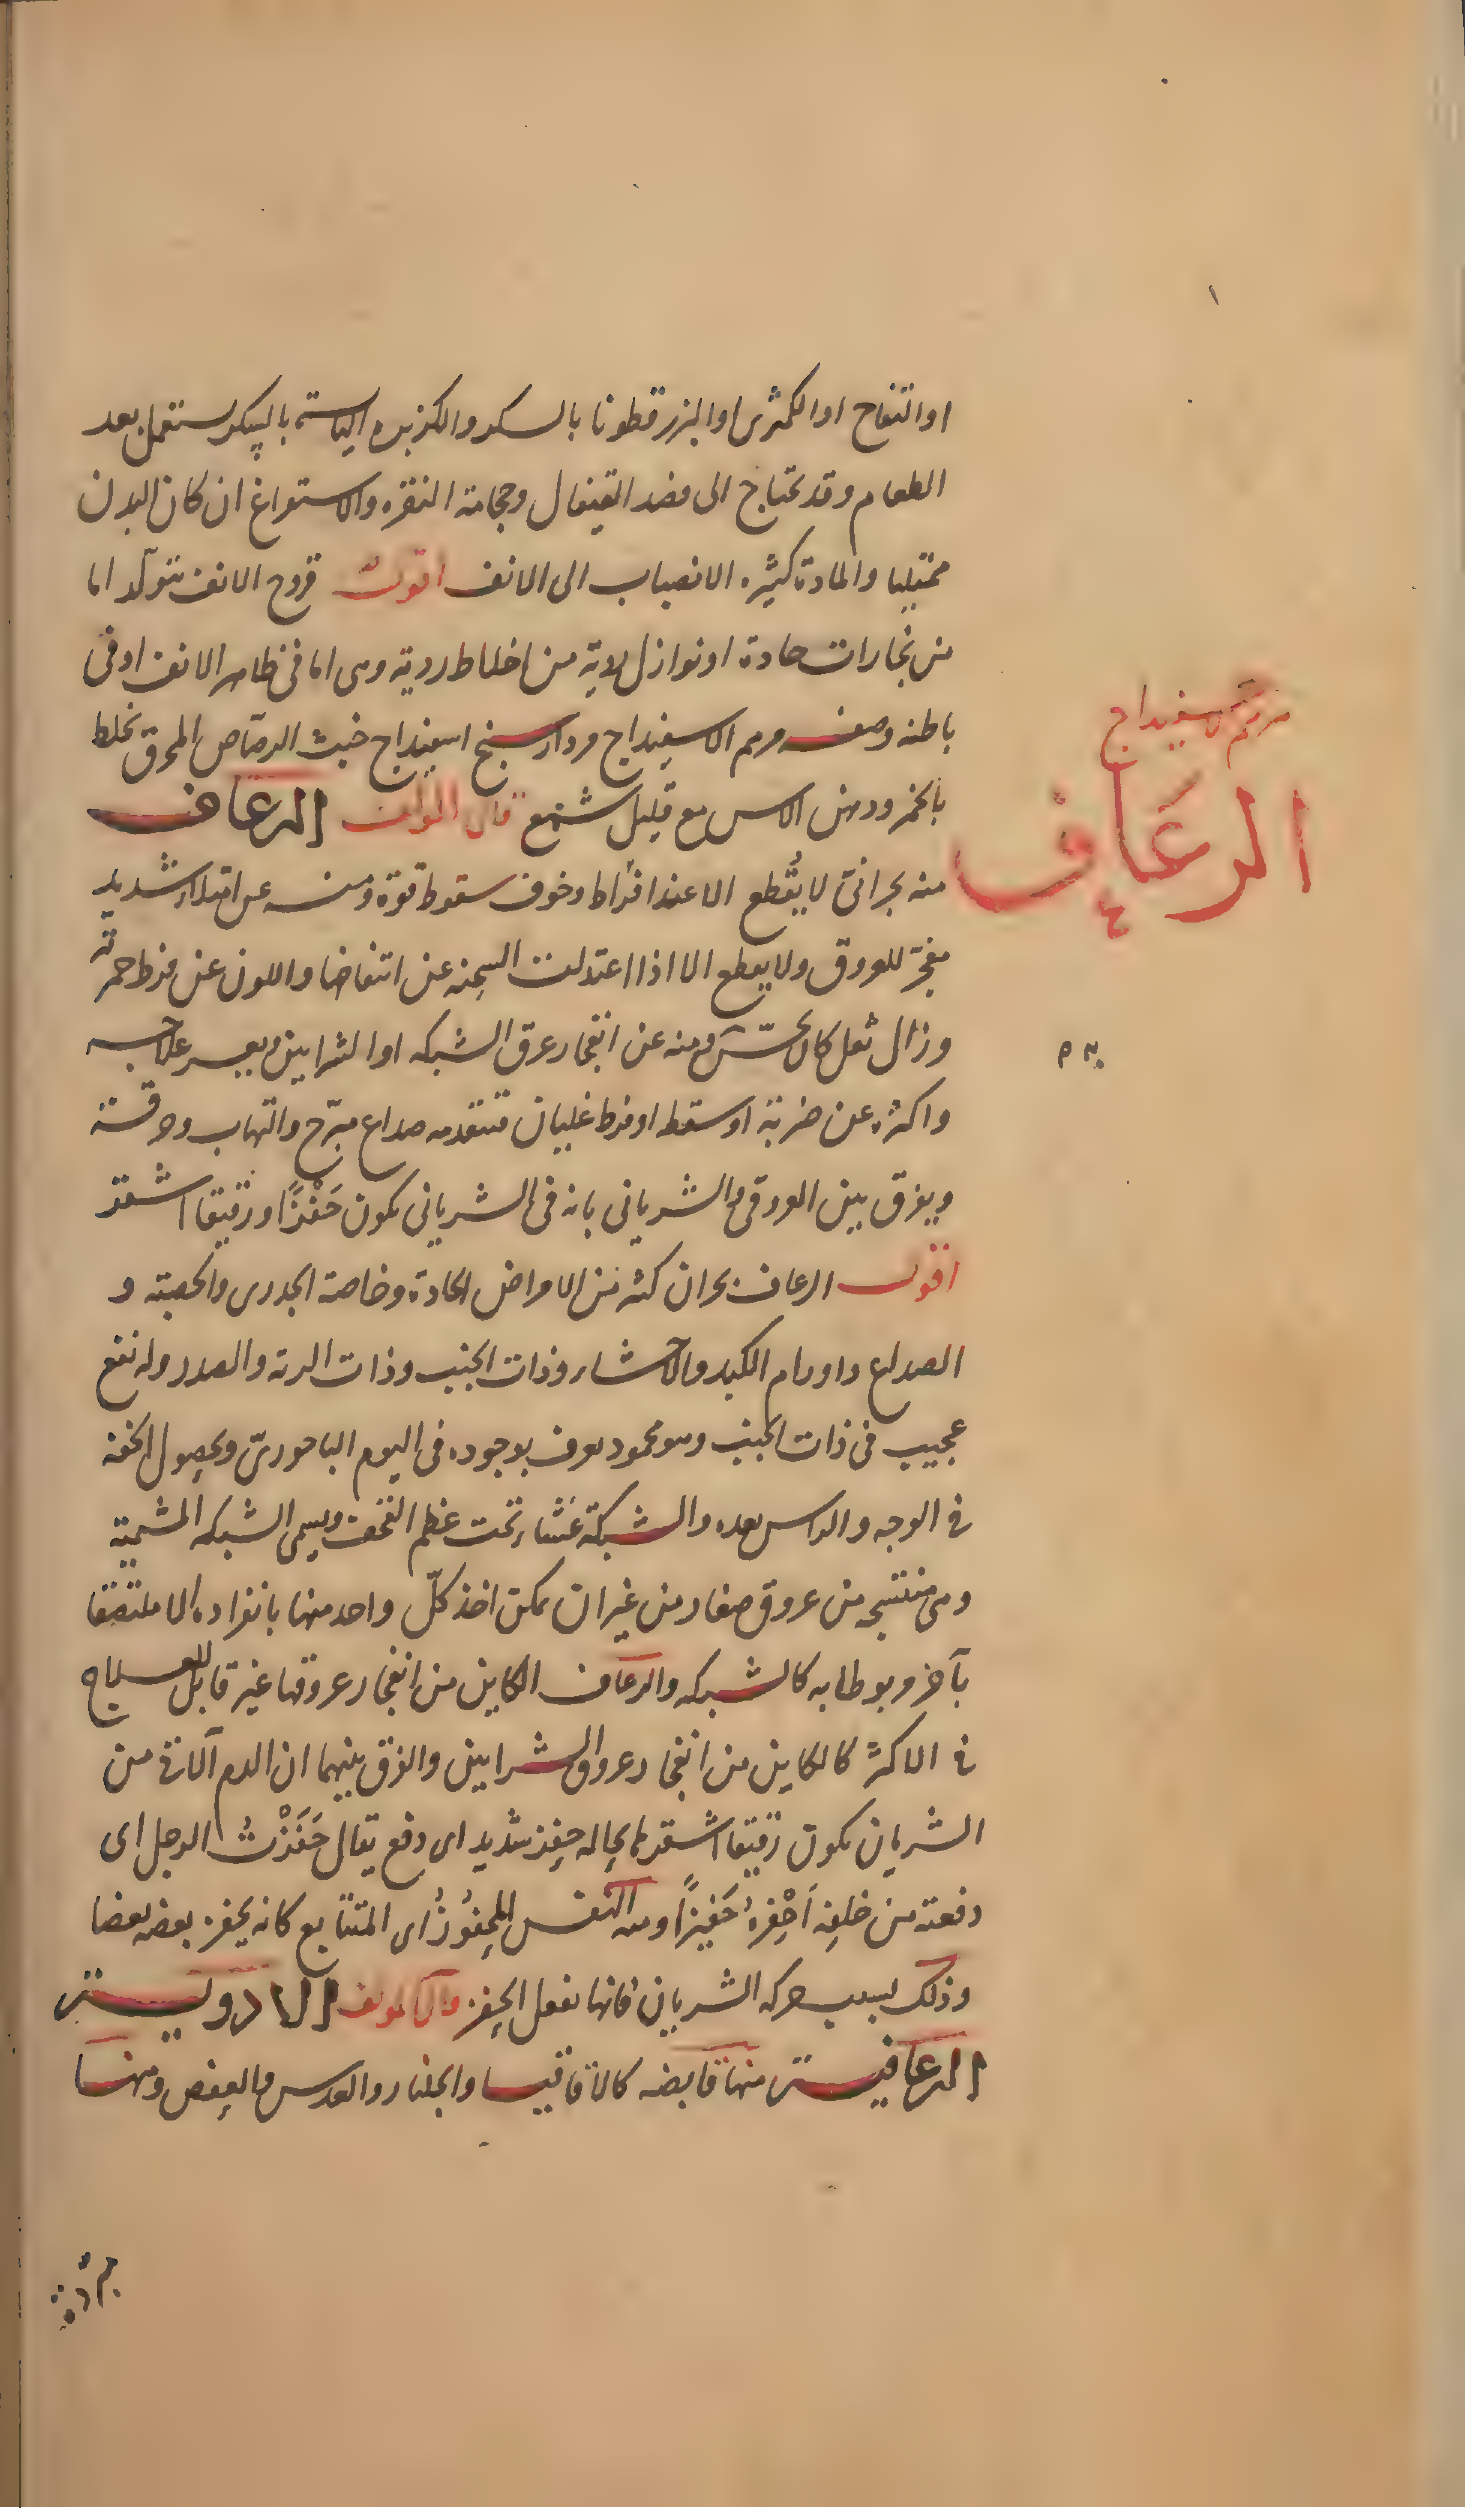 او التفاح او الكمثرى او البزر قطونا بالسكر والكزبره اليابسة بالسكر يستعمل بعد
الطعام وقد يحتاج الى فصد القيفال وحجامة النقره والاستفراغ ان كان البدن
ممتليا والمادة كثيره الانصباب الى الانف اقول قروح الانف تتولد اما
من بخارات حادة او نوازل لاية من اخلاط ردية وهى اما فى ظاهر الانف او فى
باطنه وصفه مرهم الاسفيداج مرداسنج اسفيداج خبث الرصاص المحرق يخلط
بالخمر ودهن الاس مع قليل شمع قال المولف الرعاف
منه بحرانى لا يُقطع الا عند افراط وخوف سقوط قوة ومنه عن امتلاء شديد
مفجر للعروق ولا يقطع الا اذا اعتدلت السحنه عن انتفاخها واللون عن فرط حمرته
وزال ثقل كان يحسّ ومنه عن انفجار عرق الشبكه او الشرايين ويعسر علاجه
واكثره عن ضربة او سقطه او فرط غليان فتتقدمه صداع مبرّح والتهاب وحرقة
ويفرق بين العروقى والشريانى بانه فى الشريانى يكون حَفْزًا ورقيقا اشقر
اقول الرعاف بحران كثير من الامراض الحادة وخاصة الجدرى والحصبة و
الصداع واورام الكبد والاحشاء وذات الجنب وذات الرئة والصدر وله نفع
عجيب فى ذات الجنب وهو محمود يعرف بوجوده فى اليوم الباحورىّ وبحصول الخفه
فى الوجه والراس بعده والشبكة غشاء تحت عظم القحف ويسمى الشبكه المشيمية
وهى منتسجه من عروق صغار من غير ان يمكن اخذ كلّ واحد منها بانفراده الا ملتصقا
بآخر مربوطا به كالشبكه والرعاف الكاين من انفجار عروقها غير قابل للعلاج
فى الاكثر كالكاين من انفجار عروق الشرايين والفرق بينهما ان الدم الاتى من
الشريان يكون رقيقا اشقر حفز شديد اى دفع يقال حَفَزْتُ الرجل اى
دفعته من خلفه اَحْفِزهُ حَفزًا ومنه النفس المحفُوزُ اى المتتابع كانه يحفز بعضه بعضا
وذلك بسبب حركه الشريان فانها تفعل الحفز قال المولف الادوية
الرعافية منها قابضه كالاقاقيا والجلنار والعدس والعفص ومنها
مرهم اسفيداج
الرعاف